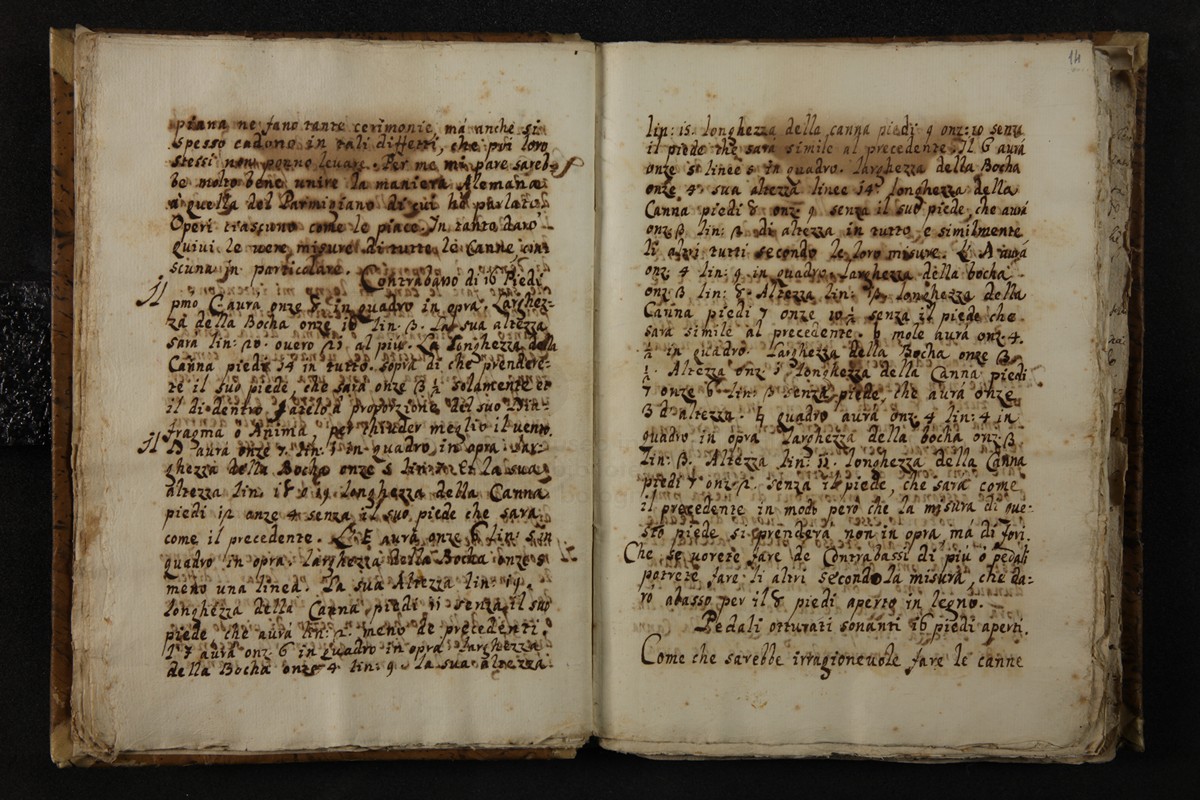 piana ne fano tante cerimonie, má anche si
spesso cadono in tali diffetti, che poi loro
stessi non ponno leuare. Per me mi pare sareb-
be molto bene unire la maniera Alemana
a quella del Parmigiano di cui ho parlato.
Operi ciascuno come le piace. In tanto daró
quiui le uere misure di tutte le Canne,
scuna in particolare. Contrabasso di 16 Piedi
Il pmo C aura onze 8 in quadro in opra. Larghez-
za della Bocha onze lin: 3. La sua altezza
sara lin: 20. ouero 21 al piu. La Longhezza della
Canna piedi 14 in tutto. sopra di che prendere-
te il suo piede, che sara onze 3 ½ solamente et
il di dentro fatelo a proporzione del suo Dia-
fragma o Anima per chiuder meglio il uento.
Il D aura onze 7. lin: in quadro in opra. lar-
ghezza della Bocha onze 5 lin: Et la sua
altezza lin: 18 o 19. longhezza della Canna
piedi 12 onze 4 senza il suo piede che sara
come il precedente. L'E aura onze 6 lin: 5 in
quadro in opra. larghezza della Bocha onze 5
meno una linea. La sua Altezza lin:
longhezza della Canna piedi 11 senza il suo
piede che aurá lin: 2. meno de precedenti.
L'F aura onz: 6 in quadro in opra larghezza
della Bocha onze 4 lin: 9 la sua altezza
14
lin: 15. longhezza della canna piedi 9 onz: 10 senza
il piede che sará simile al precedente. Il G aurá
onze 5 linee 5 in quadro. larghezza della Bocha
onze 4 sua altezza linee 14. longhezza della
Canna piedi 8 onz: 9 senza il suo piede, che aurá
onz 3 lin: 3 di altezza in tutto, e similmente
li altri tutti secondo le loro misure. L'A aurá
onz: 4 lin: 9 in quadro. larghezza della bocha
onz: 3 lin: 8. Altezza lin: longhezza della
Canna piedi 7 onze 10 ½ senza il piede che
sará simile al precedente. b mole aurá onz: 4.
½ in quadro. larghezza della Bocha onze 3
½. Altezza onz: 1 longhezza della Canna piedi
7 onze 6 lin: 3 senza piede, che aurá onze
3 d'altezza. ♮ quadro aurá onz: 4 lin: 4 in
quadro in opra larghezza della bocha onz: 3
lin: 3. Altezza lin: 11. longhezza della Canna
piedi 7 onz: 2. senza il piede, che sará come
il precedente in modo peró che la misura di que-
sto piede si prenderá non in opra má di fori.
Che se uorete fare de Contrabassi di piú o pedali
potrete fare li altri secondo la misura, che da-
ró abasso per il 8 piedi aperto in legno.
Pedali otturati sonanti 16 piedi aperti.
Come che sarebbe irragioneuole fare le canne